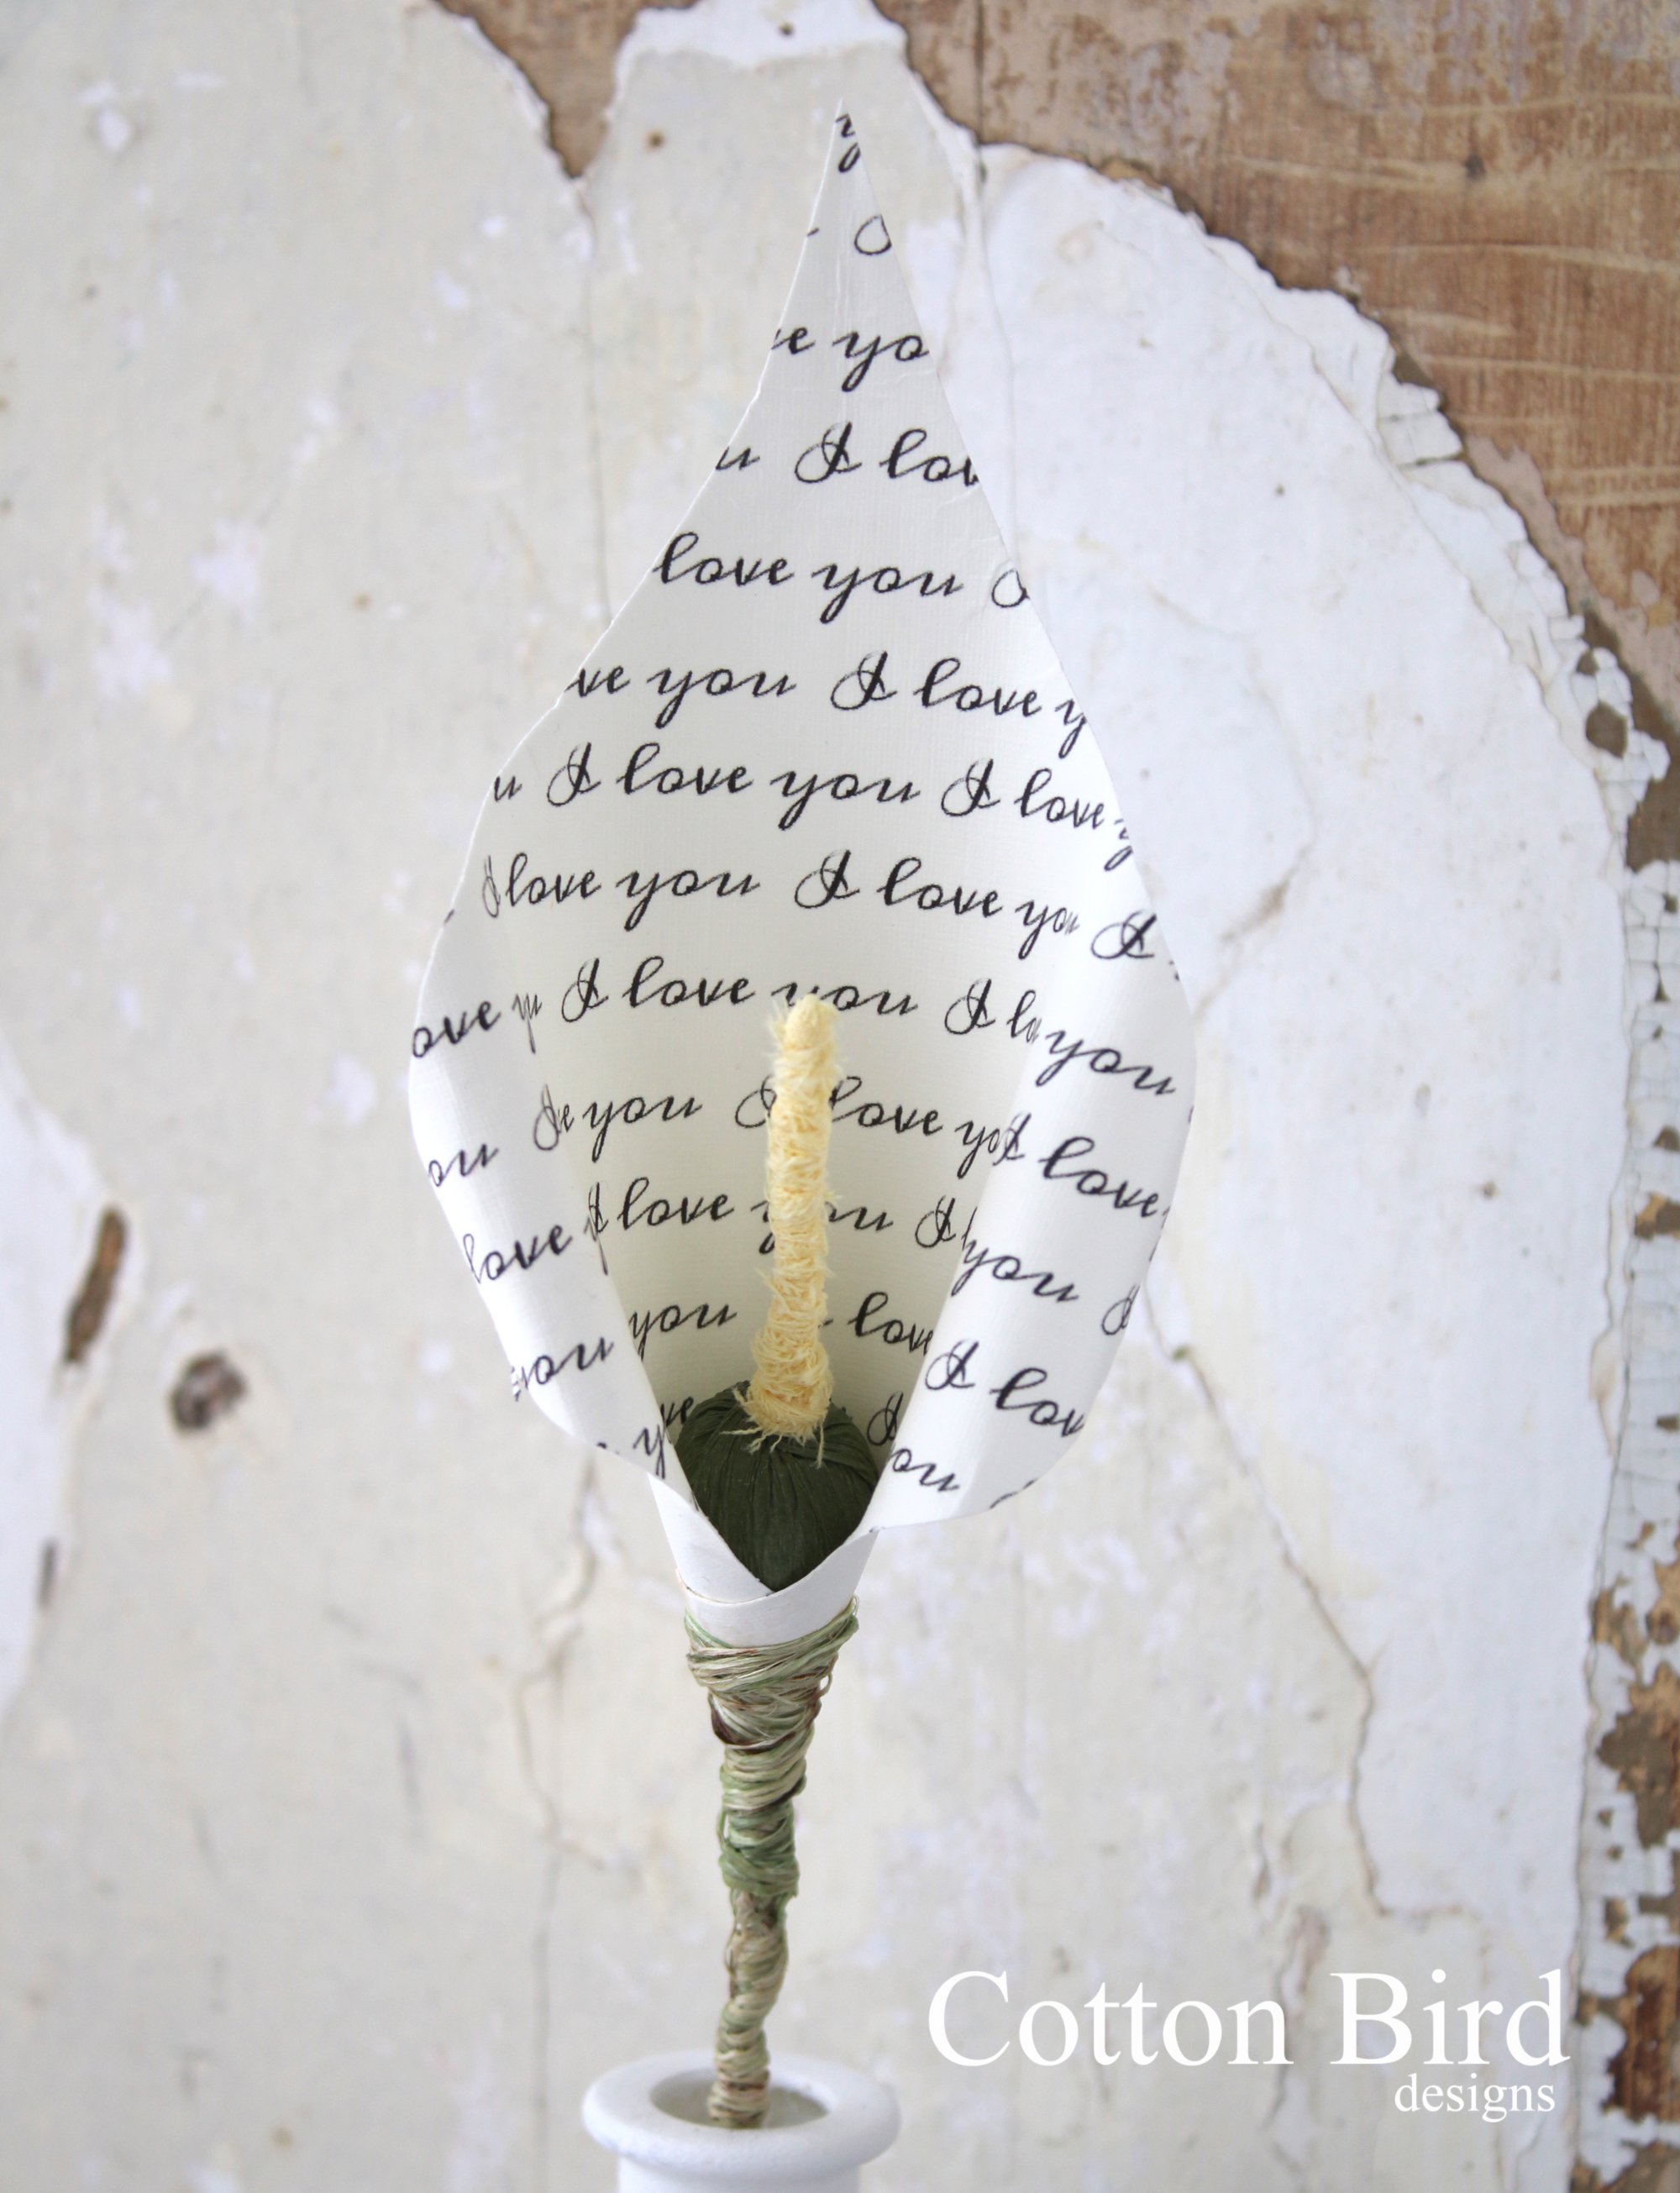 e yo
u I lov
love you
ve you I love y
u I love you I love y
I love you I love you I
ove you I love you I lo you
ou I e you I love yo I love
love I love you I you I
you you love I lov
ve I ou
Cotton Bird
designs